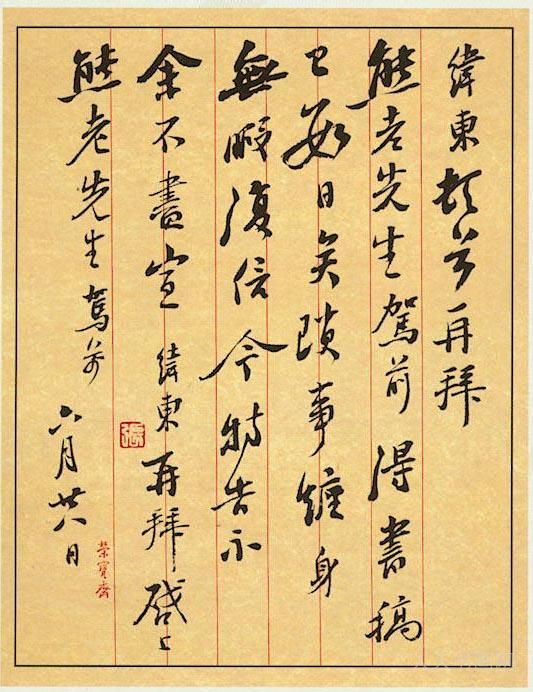 緯東頓首再拜
熊老先生駕前 得書稿
已數日矣 瑣事纏身
無暇復信 今特告示
余不盡宣 緯東再拜 啟上
熊老先生駕前
六月廿八日
榮寶齋